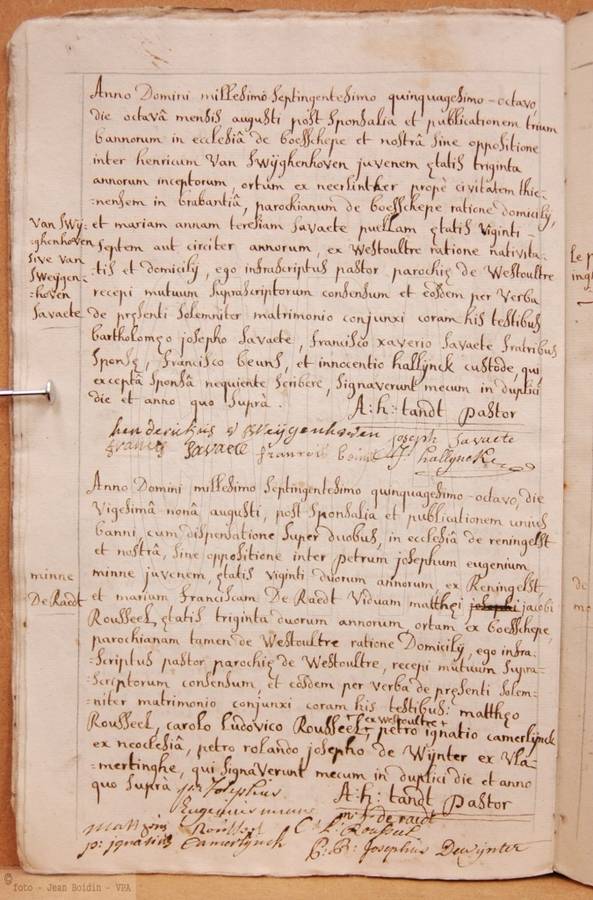 Anno Domini millesimo septingentesimo quinquagesimo-octavo,
die octavâ mensis augusti post sponsalia et publicationem trium
bannorum in ecclesiâ de boesschepe et nostrâ sine oppositione
inter henricum Van Swÿghenhoven juvenem ętatis triginta
annorum inceptorum, ortum ex neerlinther propè civitatem thie-
-nensem in brabantiâ, parochianum de boesschepe ratione domicilÿ,
et mariam annam teresiam Savaete puellam ętatis viginti-
septem aut circiter annorum, ex Westoultre ratione nativita-
-tis et domicilÿ, ego infrascriptus pastor parochię de Westoultre
recepi mutuum suprascriptorum consensum et eosdem per verba
de pręsenti solemniter matrimonio conjunxi coram his testibus
bartholomęo josepho Savaete, francisco xaverio Savaete fratribus
sponsę, francisco beuns, et innocentio hallÿnck custode, qui
exceptâ sponsâ nequiente scribere, signaverunt mecum in duplici
die et anno quo suprà.
A:h: tandt pastor
Van Swÿ-
-ghenhoven
sive van
Sweÿgen-
-hoven
Savaete
henderickus v Weÿgenhoven joseph Savaete
francis Savaete francois
hallynck
Anno Domini millesimo septingentesimo quinquagesimo-octavo, die
Vigesimâ nonâ augusti, post sponsalia et publicationem unius
banni, cum dispensatione super duobus, in ecclesiâ de reningelst
et nostrâ, sine oppositione inter petrum josephum eugenium
minne juvenem, ętatis viginti duorum annorum, ex Reningelst,
et mariam franciscam De Raedt Viduam matthęi josephi jacobi
Rousseel, ętatis triginta duorum annorum, ortam ex boesschepe,
parochianam tamen de Westoultre ratione Domicilÿ, ego infra-
-scriptus pastor parochię de Westoultre, recepi mutuum supra-
-scriptorum consensum, et eosdem per verba de pręsenti solem-
-niter matrimonio conjunxi coram his testibus: matthęo
Rousseel, carolo ludovico Rousseel + ex westoultre +, petro ignatio camerlÿnck
ex neoclesiâ, petro rolando josepho de Wÿnter ex Vla-
-mertinghe, qui signaverunt mecum in duplici die et anno
quo suprà
A:h: tandt pastor
minne
De Raedt
josephus
Eugenius minne
de raedt
Rousseel
C L Roussel
p: ignatius Camerlynck
P: R: Josephus Dewÿnter
© foto - Jean Boidin - VPA